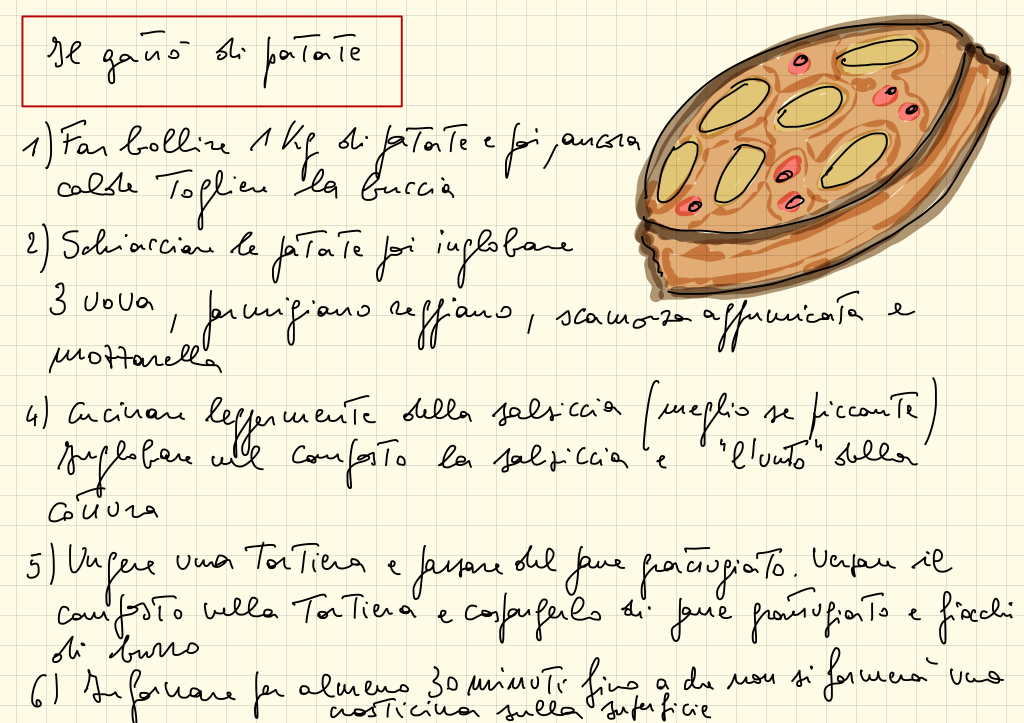 Il gattò di patate
1) Far bollire 1 Kg di patate e poi, ancora
calde togliere la buccia
2) Schiacciare le patate poi inglobare
3 uova, parmigiano reggiano, scamorza affumicata e
mozzarella
4) Cucinare leggermente della salsiccia (meglio se piccante)
Inglobare nel composto la salsiccia e "l'unto" della
cottura
5) Ungere una tortiera e passare del pane grattugiato. Versare il
composto nella tortiera e cospargerlo di pane grattugiato e fiocchi
di burro
6) Infornare per almeno 30 minuti fino a che non si formerà una
crosticina sulla superficie